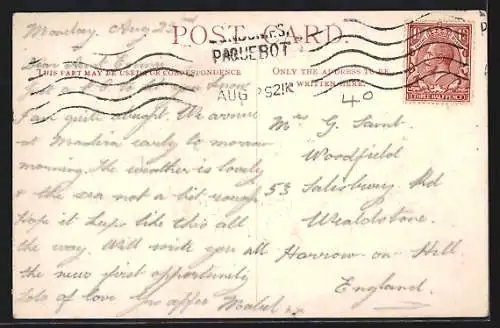 Monday Aug 22nd
POST CARD.
LONDON F.S.
PAQUEBOT
AUG 1921
40
THIS PART MAY BE USED FOR CORRESPONDENCE
ONLY THE ADDRESS TO BE WRITTEN HERE.
THREE HALFPENCE
Dear Aunt
Just a to let you know
I am quite alright. We arrive
at Madeira early to morrow
morning. The weather is lovely
& the sea not a bit rough
Hope it keeps like this all
the way. Will write you all
the news first opportunity
Lots of love Mabel
Mrs G. Saint.
Woodfield
53 Salisbury Rd
Wealdstone.
Harrow-on-Hill.
England.